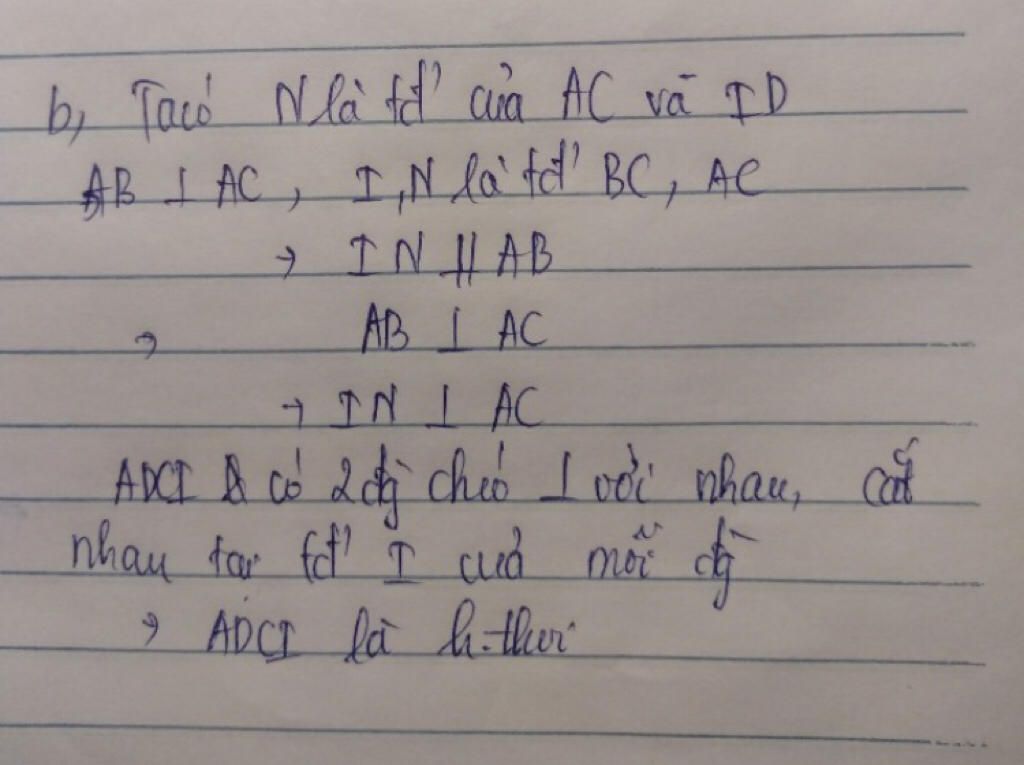 b, Ta có N là tđ' của AC và ID
AB ⊥ AC, I,N là tđ' BC, AC
→ IN // AB
→ AB ⊥ AC
→ IN ⊥ AC
ADCI có 2 đg̀ chéo ⊥ với nhau, cắt
nhau tại tđ' I của mỗi đg̀
→ ADCI là h.thoi